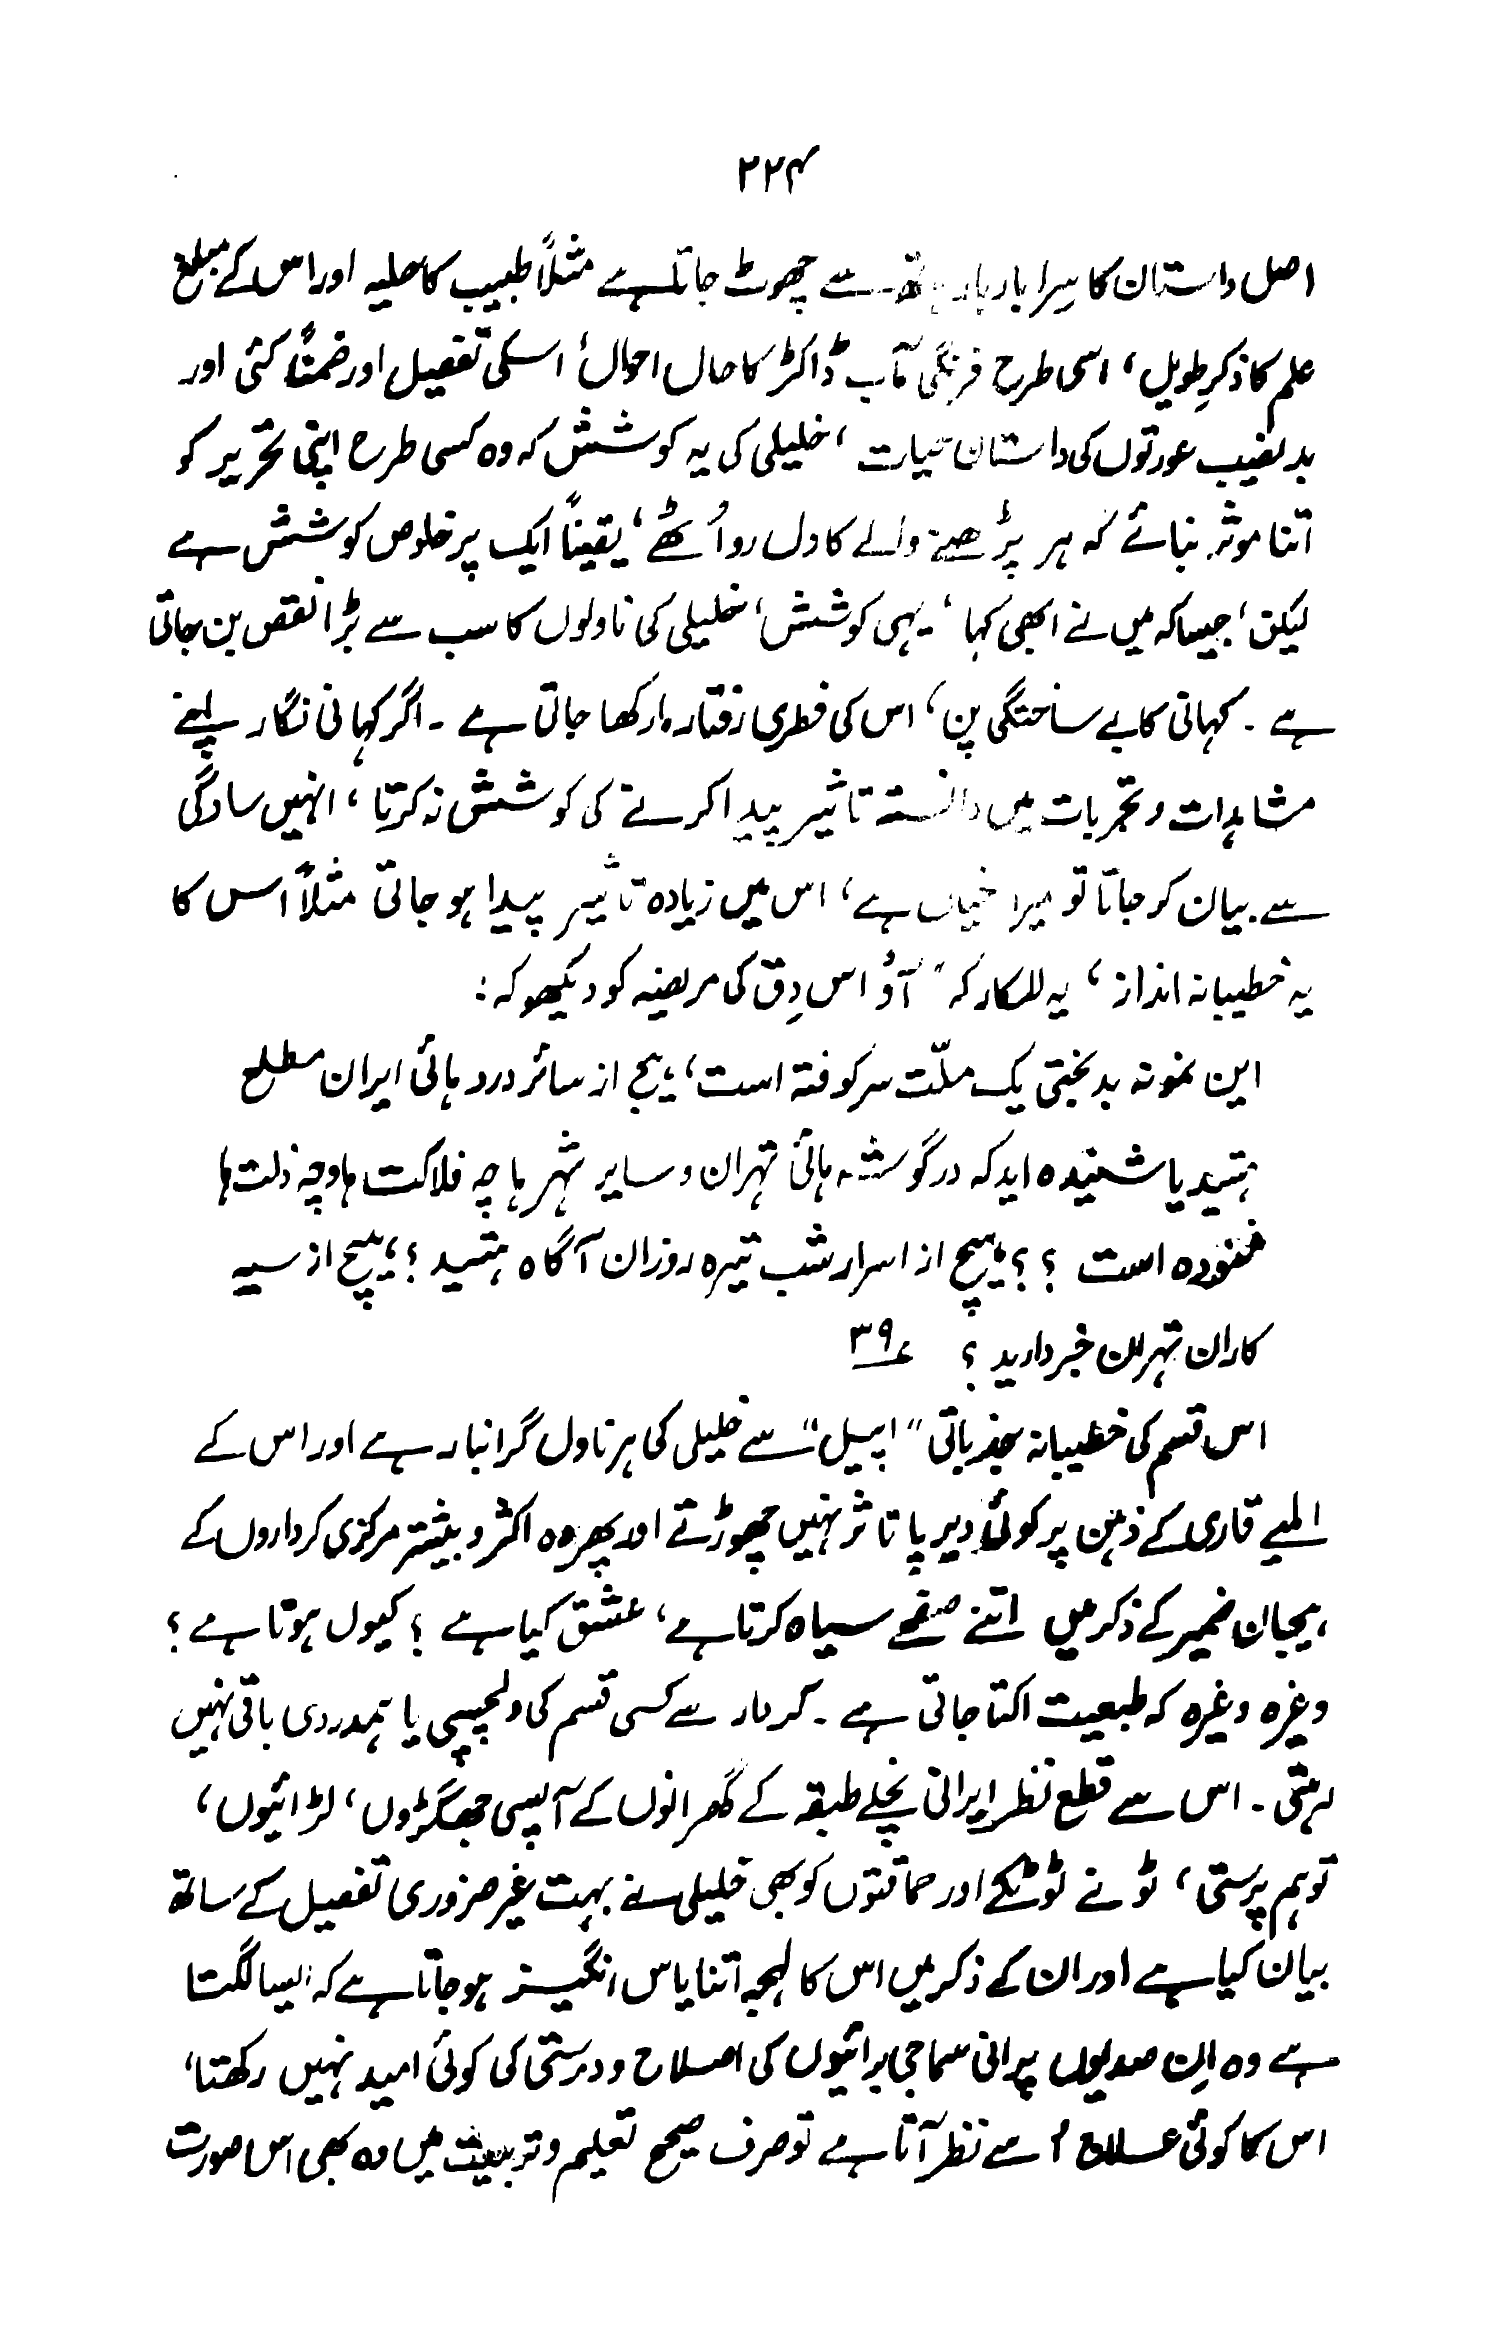 ۲۲۴
اصل داستان کا سِرا بار بار ہاتھ سے چھوٹ جاتا ہے مثلاً طبیب کا حلیہ اور اس کے مبلغ
علم کا ذکرِ طویل، اسی طرح فرنگی مآب ڈاکٹر کا حال احوال، اسکی تفصیل اور ضمناً کئی اور
بدنصیب عورتوں کی داستان حیات، خلیلی کی یہ کوشش کہ وہ کسی طرح اپنی تحریر کو
اتنا موثر بنائے کہ ہر پڑھنے والے کا دل رو اُٹھے، یقیناً ایک پرخلوص کوشش ہے
لیکن، جیسا کہ میں نے ابھی کہا، یہی کوشش، خلیلی کی ناولوں کا سب سے بڑا نقص بن جاتی
ہے۔ کہانی کا بے ساختگی پن، اس کی فطری رفتار مار کھا جاتی ہے۔ اگر کہانی نگار اپنے
مشاہدات و تجربات میں دانستہ تاثیر پیدا کرنے کی کوشش نہ کرتا، انہیں سادگی
سے بیان کر جاتا تو میرا خیال ہے، اس میں زیادہ تاثیر پیدا ہو جاتی مثلاً اس کا
یہ خطیبانہ انداز، یہ للکار کہ "آؤ اس دِق کی مریضہ کو دیکھو کہ:
این نمونہ بدبختی یک ملّت سرکوفتہ است، ہیچ از سائر دردہائی ایران مطلع
ہستید یا شنیدہ اید کہ در گوشہ ہائی تہران و سایر شہرہا چہ فلاکت ہا و چہ ذلت ہا
غنودہ است ؟؟ ہیچ از اسرار شب تیرہ روزان آگاہ ہستید ؟ ہیچ از سیہ
کاران تہران خبر دارید ؟ ۳۹؎
اس قسم کی خطیبانہ جذباتی "اپیل" سے خلیلی کی ہر ناول گرانبار ہے اور اس کے
المیے قاری کے ذہن پر کوئی دیرپا تاثر نہیں چھوڑتے اور پھر وہ اکثر و بیشتر مرکزی کرداروں کے
ہیجان ضمیر کے ذکر میں اتنے صفحے سیاہ کرتا ہے، عشق کیا ہے ؟ کیوں ہوتا ہے ؟
وغیرہ وغیرہ کہ طبعیت اکتا جاتی ہے۔ کردار سے کسی قسم کی دلچسپی یا ہمدردی باقی نہیں
رہتی۔ اس سے قطع نظر ایرانی نچلے طبقہ کے گھرانوں کے آپسی جھگڑوں، لڑائیوں،
توہم پرستی، ٹونے ٹوٹکے اور حماقتوں کو بھی خلیلی نے بہت غیر ضروری تفصیل کے ساتھ
بیان کیا ہے اور ان کے ذکر میں اس کا لہجہ اتنا یاس انگیز ہو جاتا ہے کہ ایسا لگتا
ہے وہ اِن صدیوں پرانی سماجی برائیوں کی اصلاح و درستی کی کوئی امید نہیں رکھتا،
اس کا کوئی علاج اُسے نظر آتا ہے تو صرف صحیح تعلیم و تربیت میں وہ بھی اس صورت